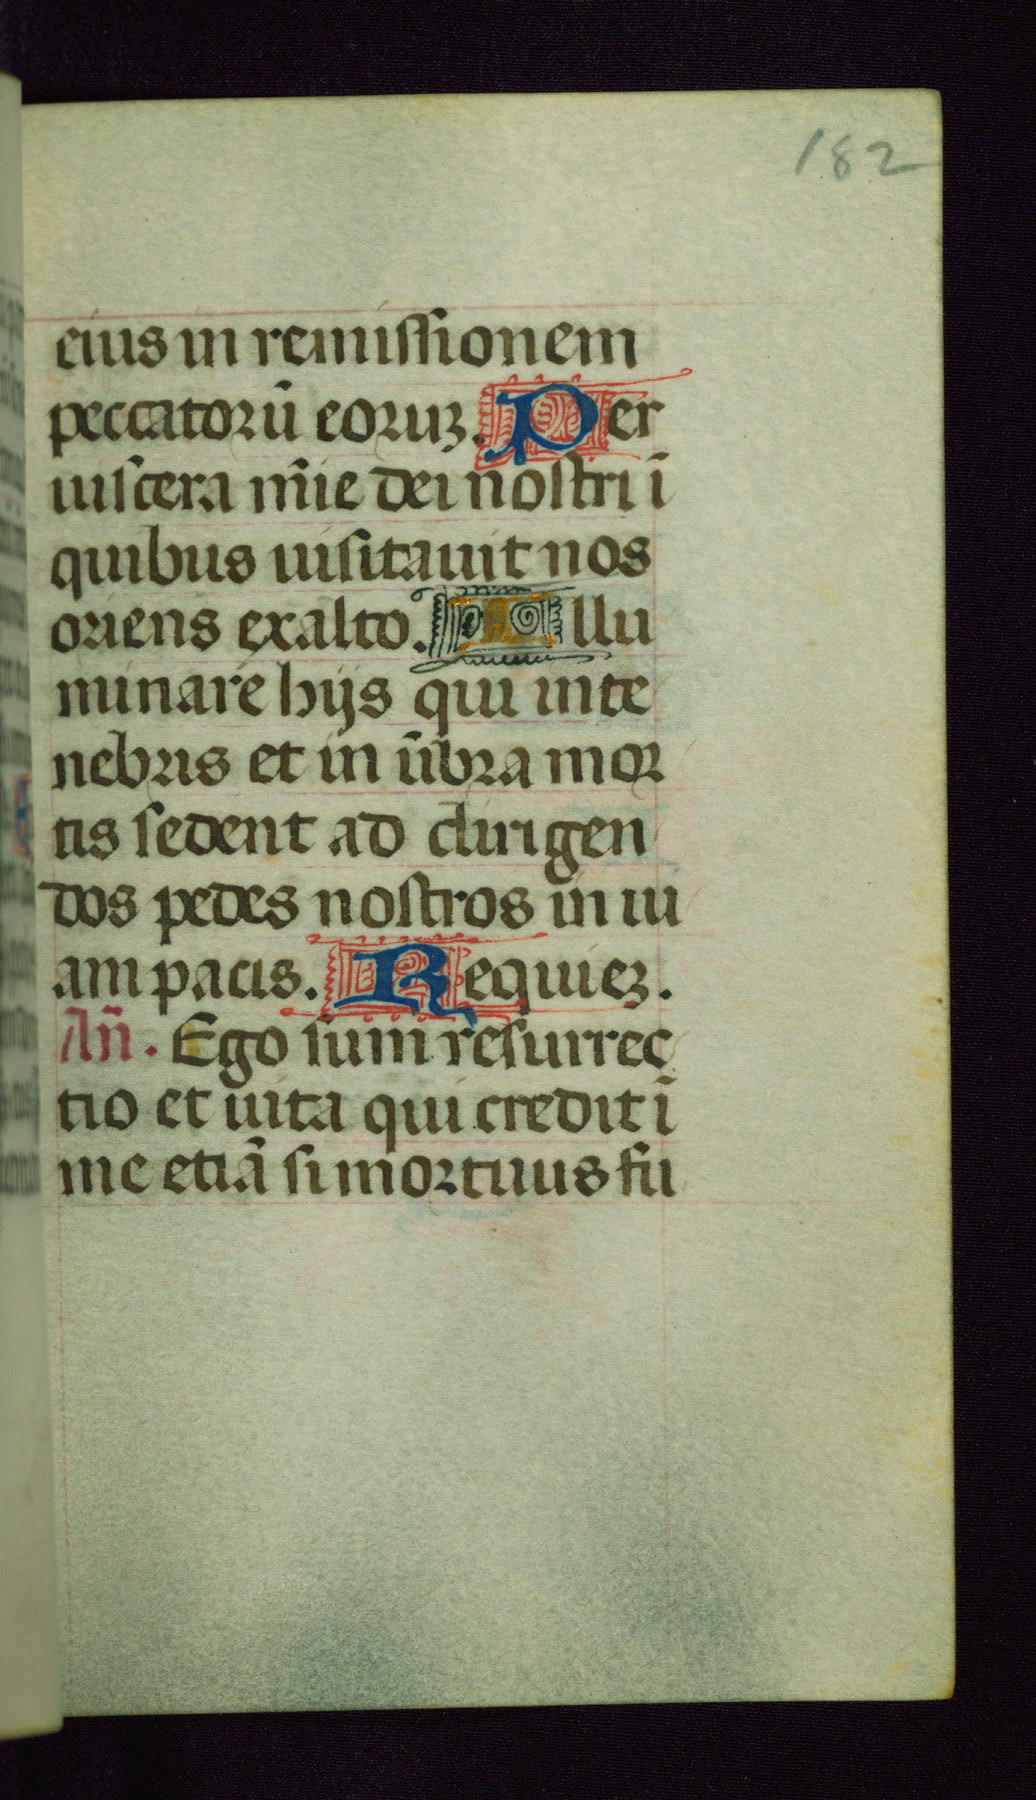 182
eius in remissionem
peccatorū eoruꝫ. Per
uiscera mīe dei nostri ī
quibus uisitauit nos
oriens exalto. Illu
minare hijs qui in te
nebris et in ūbra mor
tis sedent ad dirigen
dos pedes nostros in ui
am pacis. Requieꝫ.
Añ. Ego sum resurrec
tio et uita qui credit ī
me etiā si mortuus fu